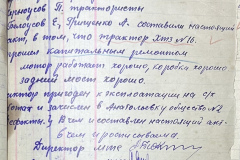 П. трактористы
Е. Гриценко А. составили настоящий
в том, что трактор ХТЗ №16.
прошел капитальным ремонтом
мотор работает хорошо, коробка хорошо
задний мост хорошо.
трактор пригоден к эксплоатации на с/х
и зачислен в Анатольевку общество №2
в чем и составлен настоящий акт
в чем и росписываемся.
Директор мтс